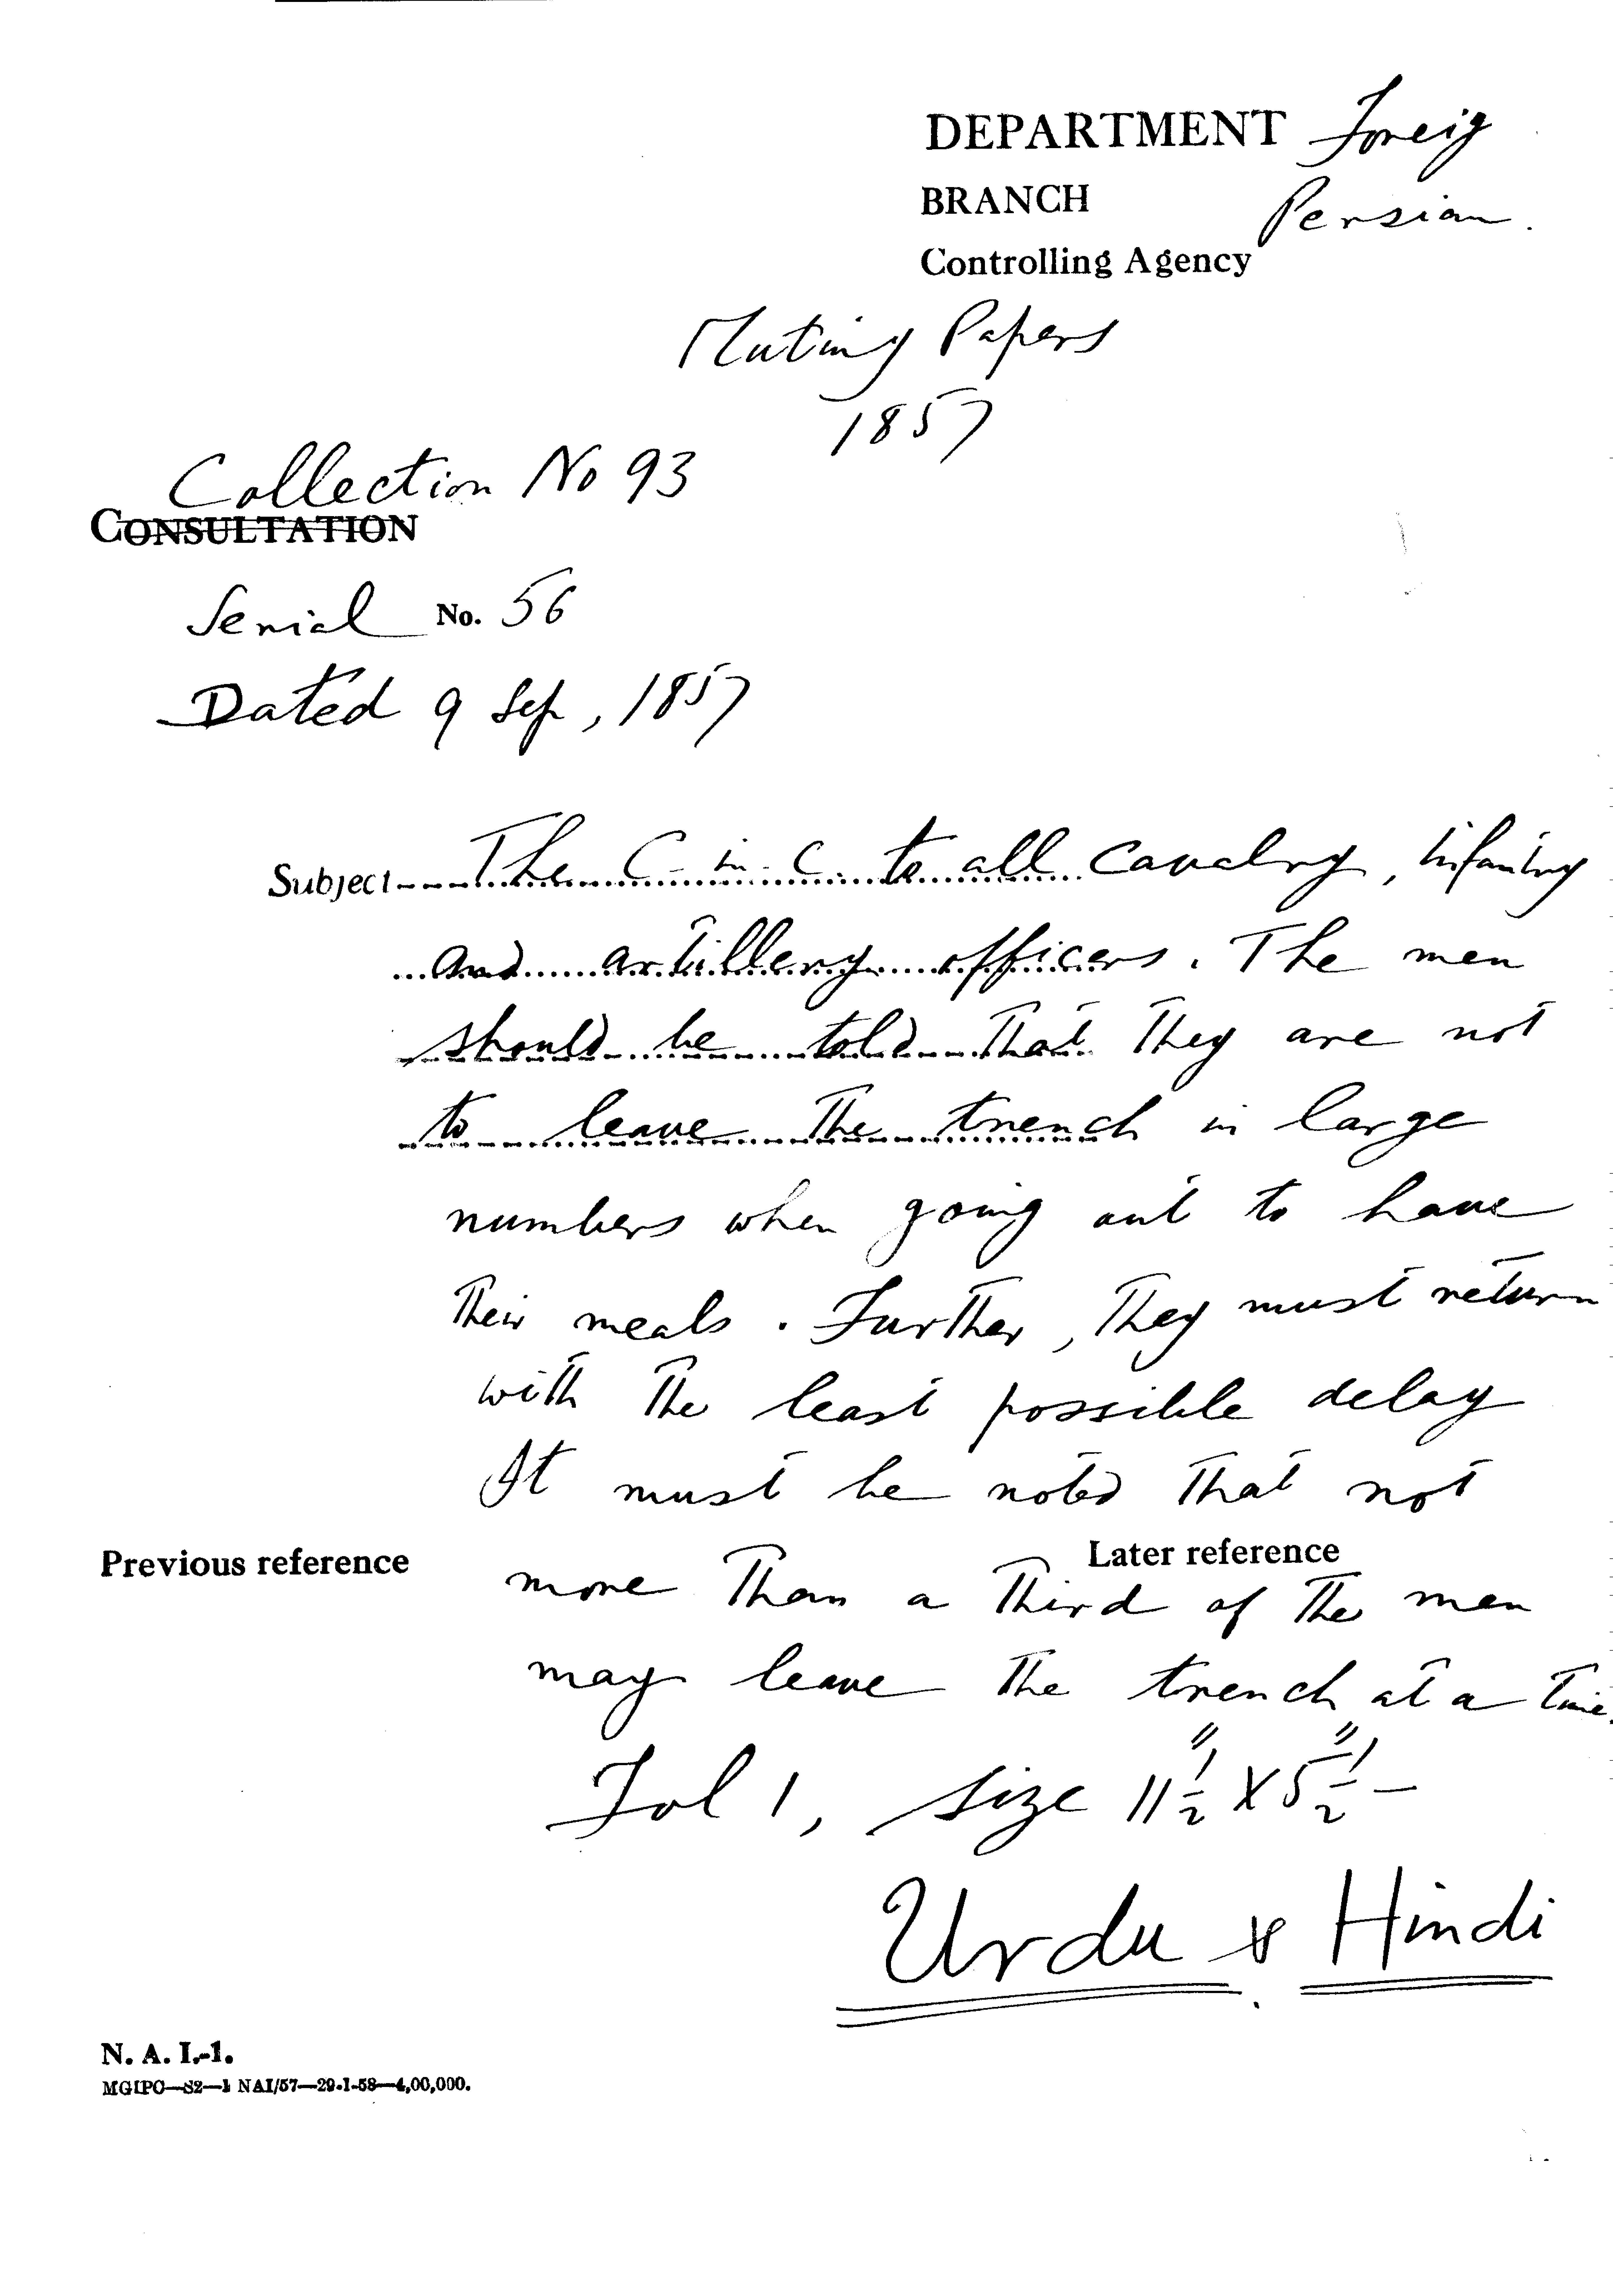 DEPARTMENT Foreig
BRANCH Persian.
Controlling Agency
Mutiny Papers
1857
Collection No 93
CONSULTATION
Serial No. 56
Dated 9 Sep, 1857
Subject The C-in-C to all cavalry, infantry
and artillery officers. The men
should be told that they are not
to leave the trench in large
numbers when going out to have
their meals. Further, they must return
with the least possible delay
It must be noted that not
Previous reference
Later reference
more than a third of the men
may leave the trench at a time.
Fol 1, size 11 1/2" X 5 1/2" —
Urdu & Hindi
N. A. I.-1.
MGIPC—S2—1 NAI/57—29-1-58—4,00,000.